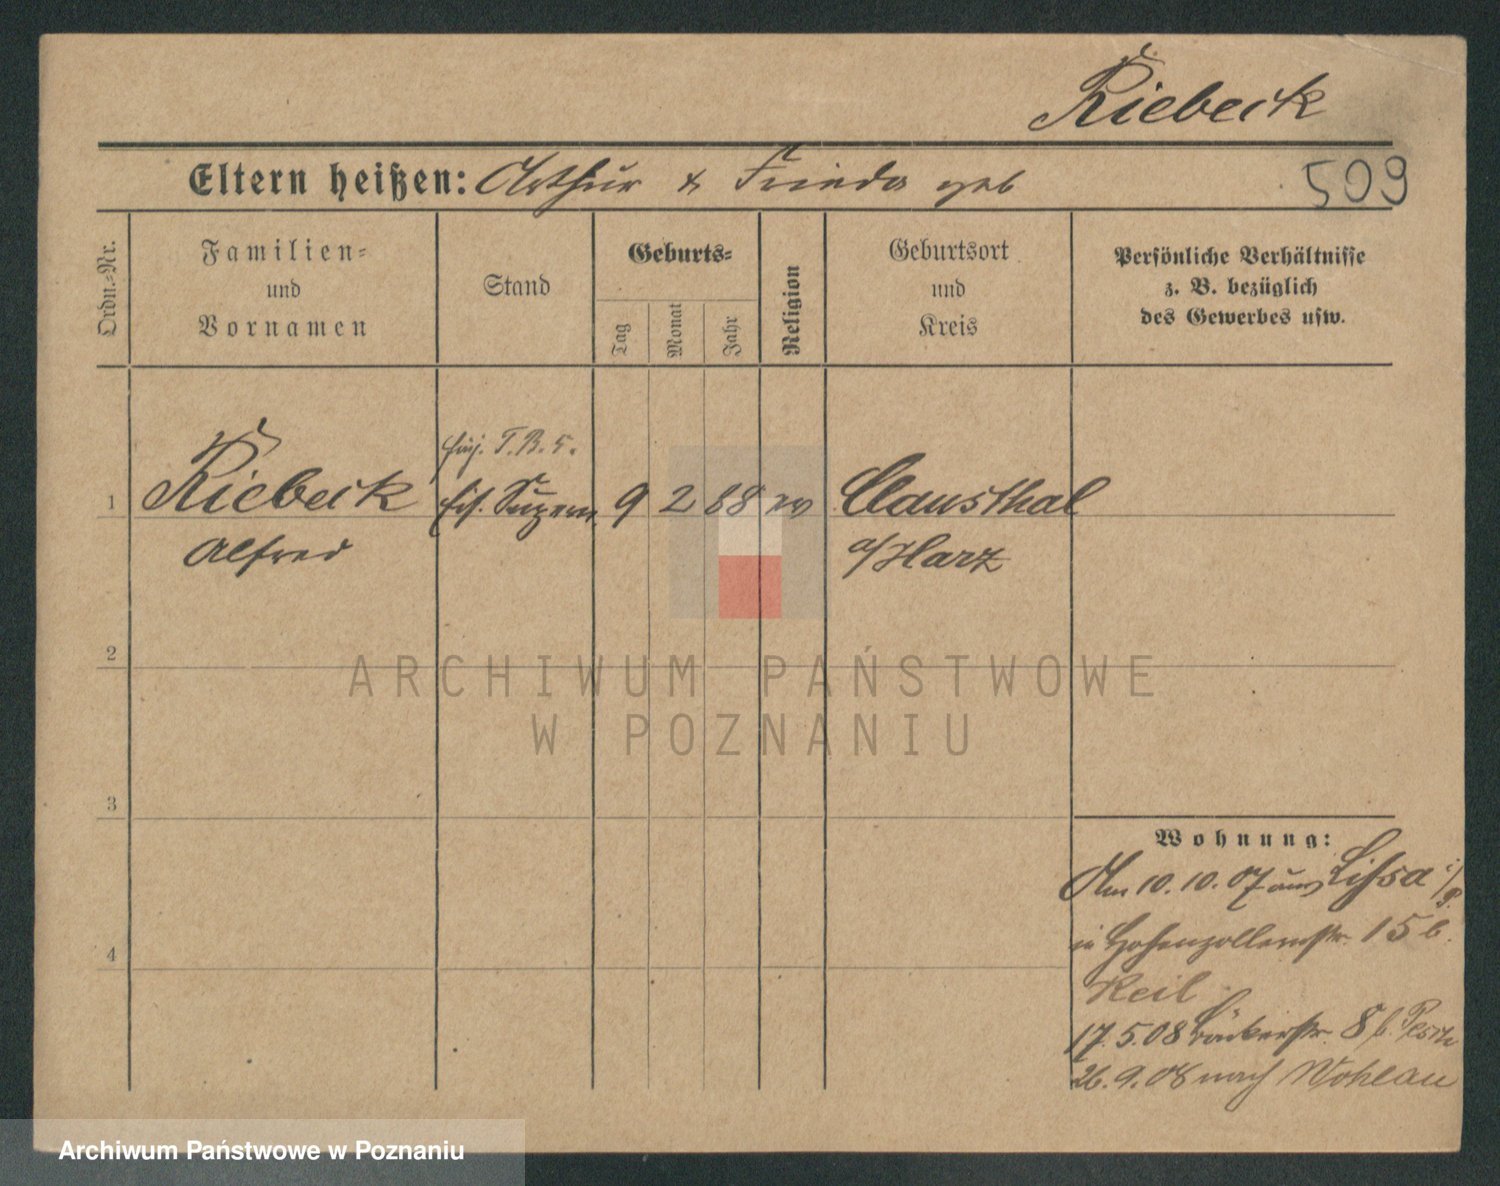 Riebeck
Eltern heißen: Arthur & Frieda geb
509
Ordn.-Nr.
Familien-
und
Vornamen
Stand
Geburts-
Tag
Monat
Jahr
Religion
Geburtsort
und
Kreis
Persönliche Verhältnisse
z. B. bezüglich
des Gewerbes usw.
1
Riebeck
Alfred
T.B. 5.
9 2 88 ev
Clausthal
a/Harz
2
ARCHIWUM PAŃSTWOWE
W POZNANIU
3
4
Wohnung:
Am 10.10.07 aus Lissa i/P.
in Hohenzollernstr. 15 b.
Keil
17.5.08 Bäckerstr. 8 b.
26.9.08 nach Wohlau
Archiwum Państwowe w Poznaniu